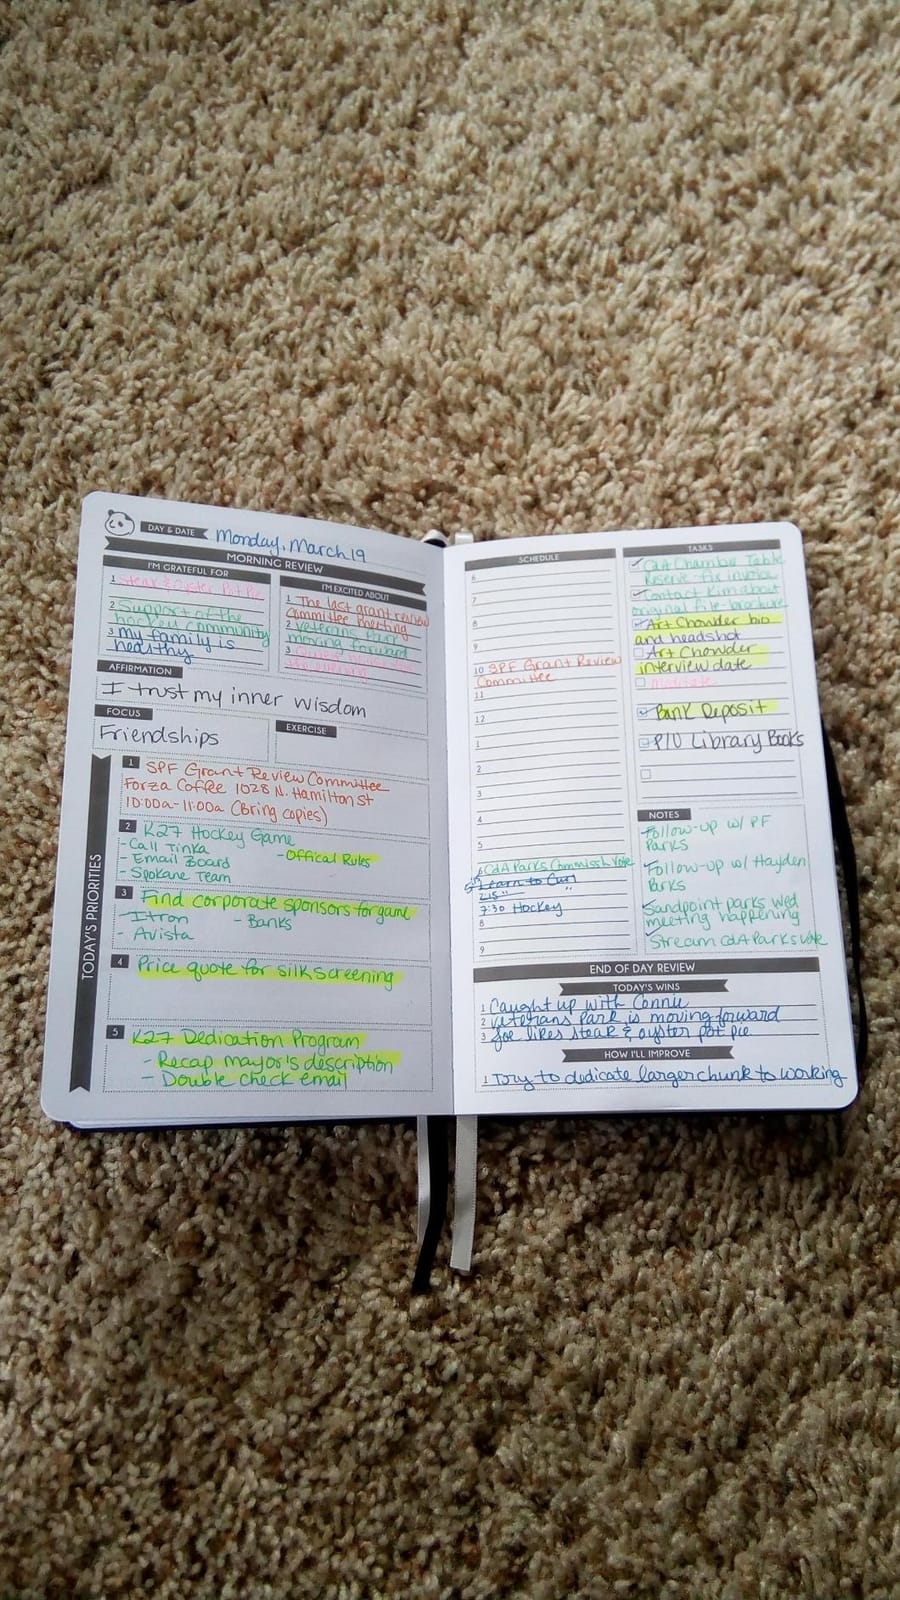 DAY & DATE Monday, March 19
MORNING REVIEW
I'M GRATEFUL FOR
1 Steak & Oyster Pot Pie
2 Support of the
hockey community
3 my family is
healthy
I'M EXCITED ABOUT
1 The last grant review
committee meeting
2 Veterans Park
moving forward
3
AFFIRMATION
I trust my inner wisdom
FOCUS
Friendships
EXERCISE
TODAY'S PRIORITIES
1 SPF Grant Review Committee
Forza Coffee 1028 N. Hamilton St
10:00a-11:00a (Bring copies)
2 K27 Hockey Game
- Call Tinka
- Email Board - Offical Rules
- Spokane Team
3 Find corporate sponsors for game
- Itron - Banks
- Avista
4 Price quote for silkscreening
5 K27 Dedication Program
- Recap mayor's description
- Double check email
SCHEDULE
6
7
8
9
10 SPF Grant Review
Committee
11
12
1
2
3
4
5
6 CdA Parks Commissh Vote
Learn to Curl
7:15
7:30 Hockey
8
9
TASKS
CdA Chamber Table
Reserve
Contact Kim about
original file-brochure
Art Chowder bio
and headshot
Art Chowder
interview date
Meditate
Bank Deposit
P/U Library Books
NOTES
Follow-up w/ PF
Parks
Follow-up w/ Hayden
Parks
Sandpoint parks wed
meeting happening
Stream CdA Parks vote
END OF DAY REVIEW
TODAY'S WINS
1 Caught up with Connie
2 Veterans Park is moving forward
3 Joe likes steak & oyster pot pie
HOW I'LL IMPROVE
1 Try to dedicate larger chunk to working